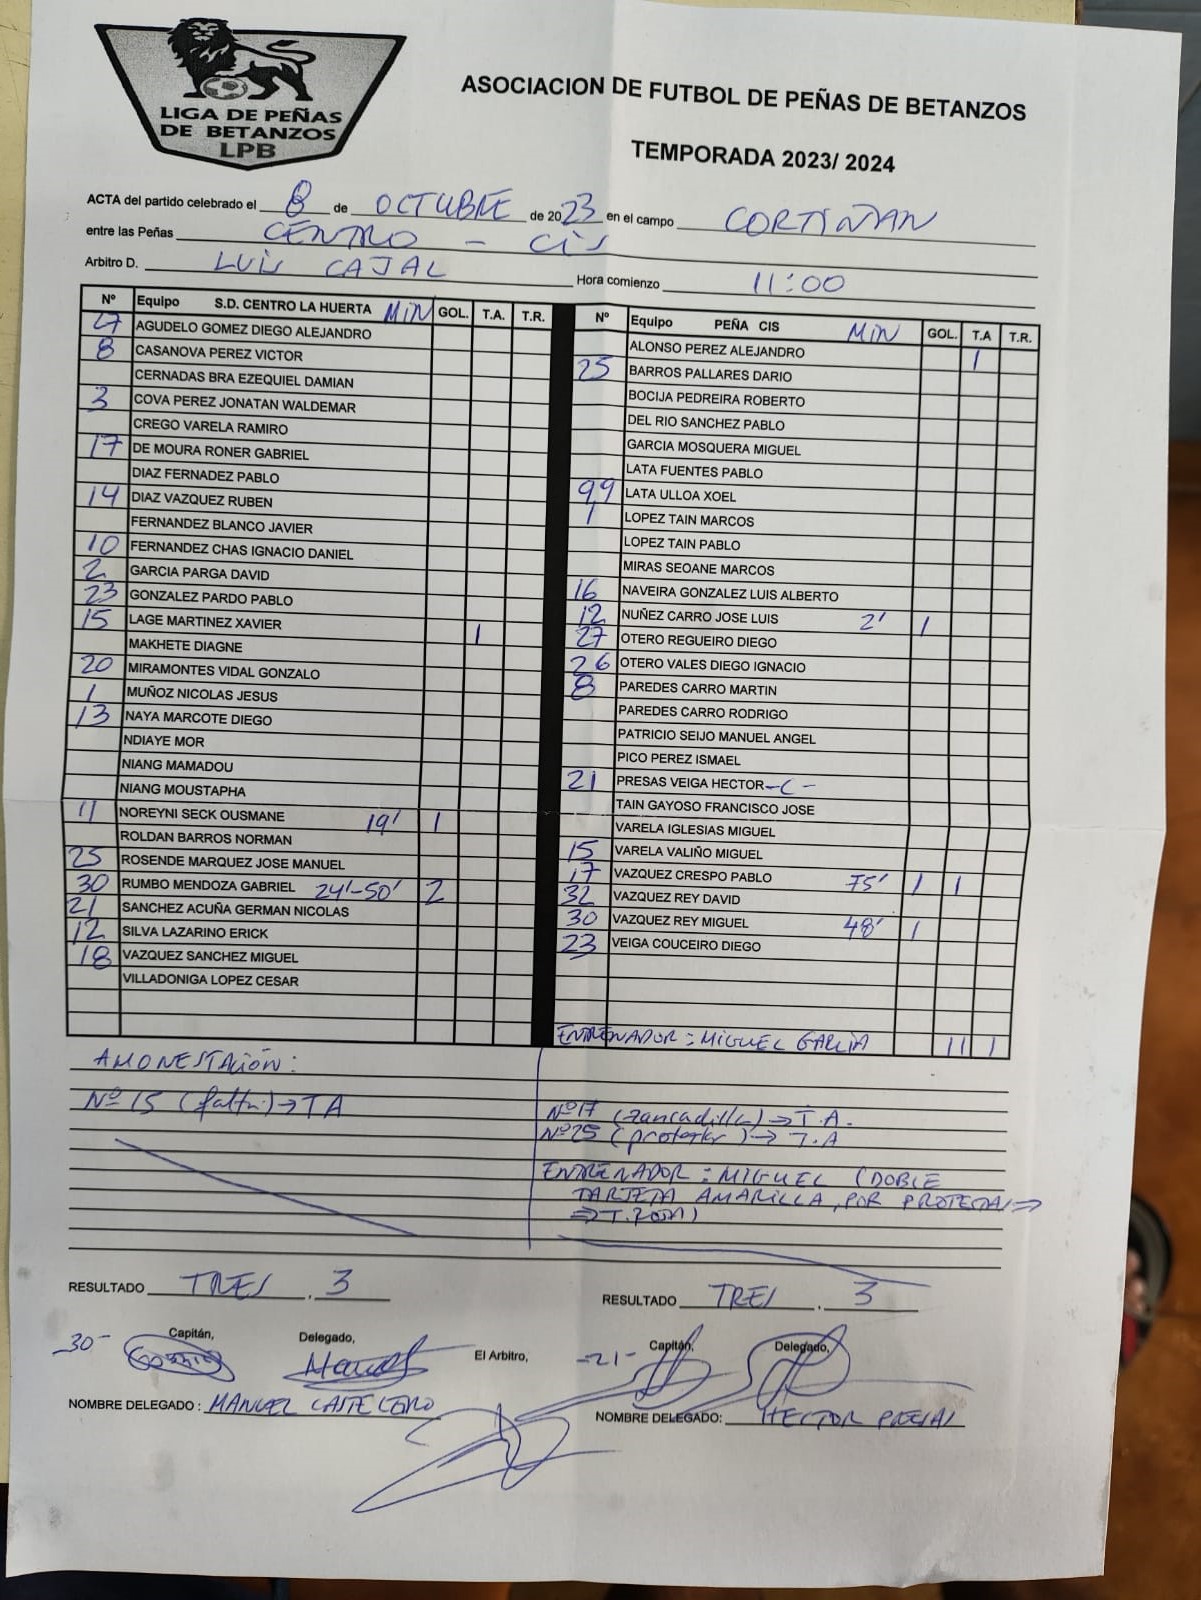 LIGA DE PEÑAS
DE BETANZOS
LPB
ASOCIACION DE FUTBOL DE PEÑAS DE BETANZOS
TEMPORADA 2023/ 2024
ACTA del partido celebrado el 8 de OCTUBRE de 2023 en el campo CORTIÑAN
entre las Peñas CENTRO - CIS
Arbitro D. LUIS CAJAL Hora comienzo 11:00
Nº Equipo S.D. CENTRO LA HUERTA MIN GOL. T.A. T.R.
27 AGUDELO GOMEZ DIEGO ALEJANDRO
8 CASANOVA PEREZ VICTOR
CERNADAS BRA EZEQUIEL DAMIAN
3 COVA PEREZ JONATAN WALDEMAR
CREGO VARELA RAMIRO
17 DE MOURA RONER GABRIEL
DIAZ FERNADEZ PABLO
14 DIAZ VAZQUEZ RUBEN
FERNANDEZ BLANCO JAVIER
10 FERNANDEZ CHAS IGNACIO DANIEL
2 GARCIA PARGA DAVID
23 GONZALEZ PARDO PABLO
15 LAGE MARTINEZ XAVIER 1
MAKHETE DIAGNE
20 MIRAMONTES VIDAL GONZALO
1 MUÑOZ NICOLAS JESUS
13 NAYA MARCOTE DIEGO
NDIAYE MOR
NIANG MAMADOU
NIANG MOUSTAPHA
11 NOREYNI SECK OUSMANE 19' 1
ROLDAN BARROS NORMAN
25 ROSENDE MARQUEZ JOSE MANUEL
30 RUMBO MENDOZA GABRIEL 24'-50' 2
21 SANCHEZ ACUÑA GERMAN NICOLAS
12 SILVA LAZARINO ERICK
18 VAZQUEZ SANCHEZ MIGUEL
VILLADONIGA LOPEZ CESAR
Nº Equipo PEÑA CIS MIN GOL. T.A T.R.
ALONSO PEREZ ALEJANDRO
25 BARROS PALLARES DARIO 1
BOCIJA PEDREIRA ROBERTO
DEL RIO SANCHEZ PABLO
GARCIA MOSQUERA MIGUEL
LATA FUENTES PABLO
99 LATA ULLOA XOEL
1 LOPEZ TAIN MARCOS
LOPEZ TAIN PABLO
MIRAS SEOANE MARCOS
16 NAVEIRA GONZALEZ LUIS ALBERTO
12 NUÑEZ CARRO JOSE LUIS 2' 1
27 OTERO REGUEIRO DIEGO
26 OTERO VALES DIEGO IGNACIO
8 PAREDES CARRO MARTIN
PAREDES CARRO RODRIGO
PATRICIO SEIJO MANUEL ANGEL
PICO PEREZ ISMAEL
21 PRESAS VEIGA HECTOR -C-
TAIN GAYOSO FRANCISCO JOSE
VARELA IGLESIAS MIGUEL
15 VARELA VALIÑO MIGUEL
17 VAZQUEZ CRESPO PABLO 75' 1 1
32 VAZQUEZ REY DAVID
30 VAZQUEZ REY MIGUEL 48' 1
23 VEIGA COUCEIRO DIEGO
ENTRENADOR : MIGUEL GARCIA 11 1
AMONESTACIÓN :
Nº 15 (falta) → TA
Nº17 (zancadilla) → T.A.
Nº25 (protestar) → T.A
ENTRENADOR : MIGUEL (DOBLE
TARJETA AMARILLA, POR PROTESTAS ⇒
⇒ T. ROJA)
RESULTADO TRES . 3
RESULTADO TRES . 3
30- Capitán, Delegado, El Arbitro, -21- Capitán, Delegado,
NOMBRE DELEGADO : MANUEL CASTELEIRO
NOMBRE DELEGADO: HECTOR PRESAS